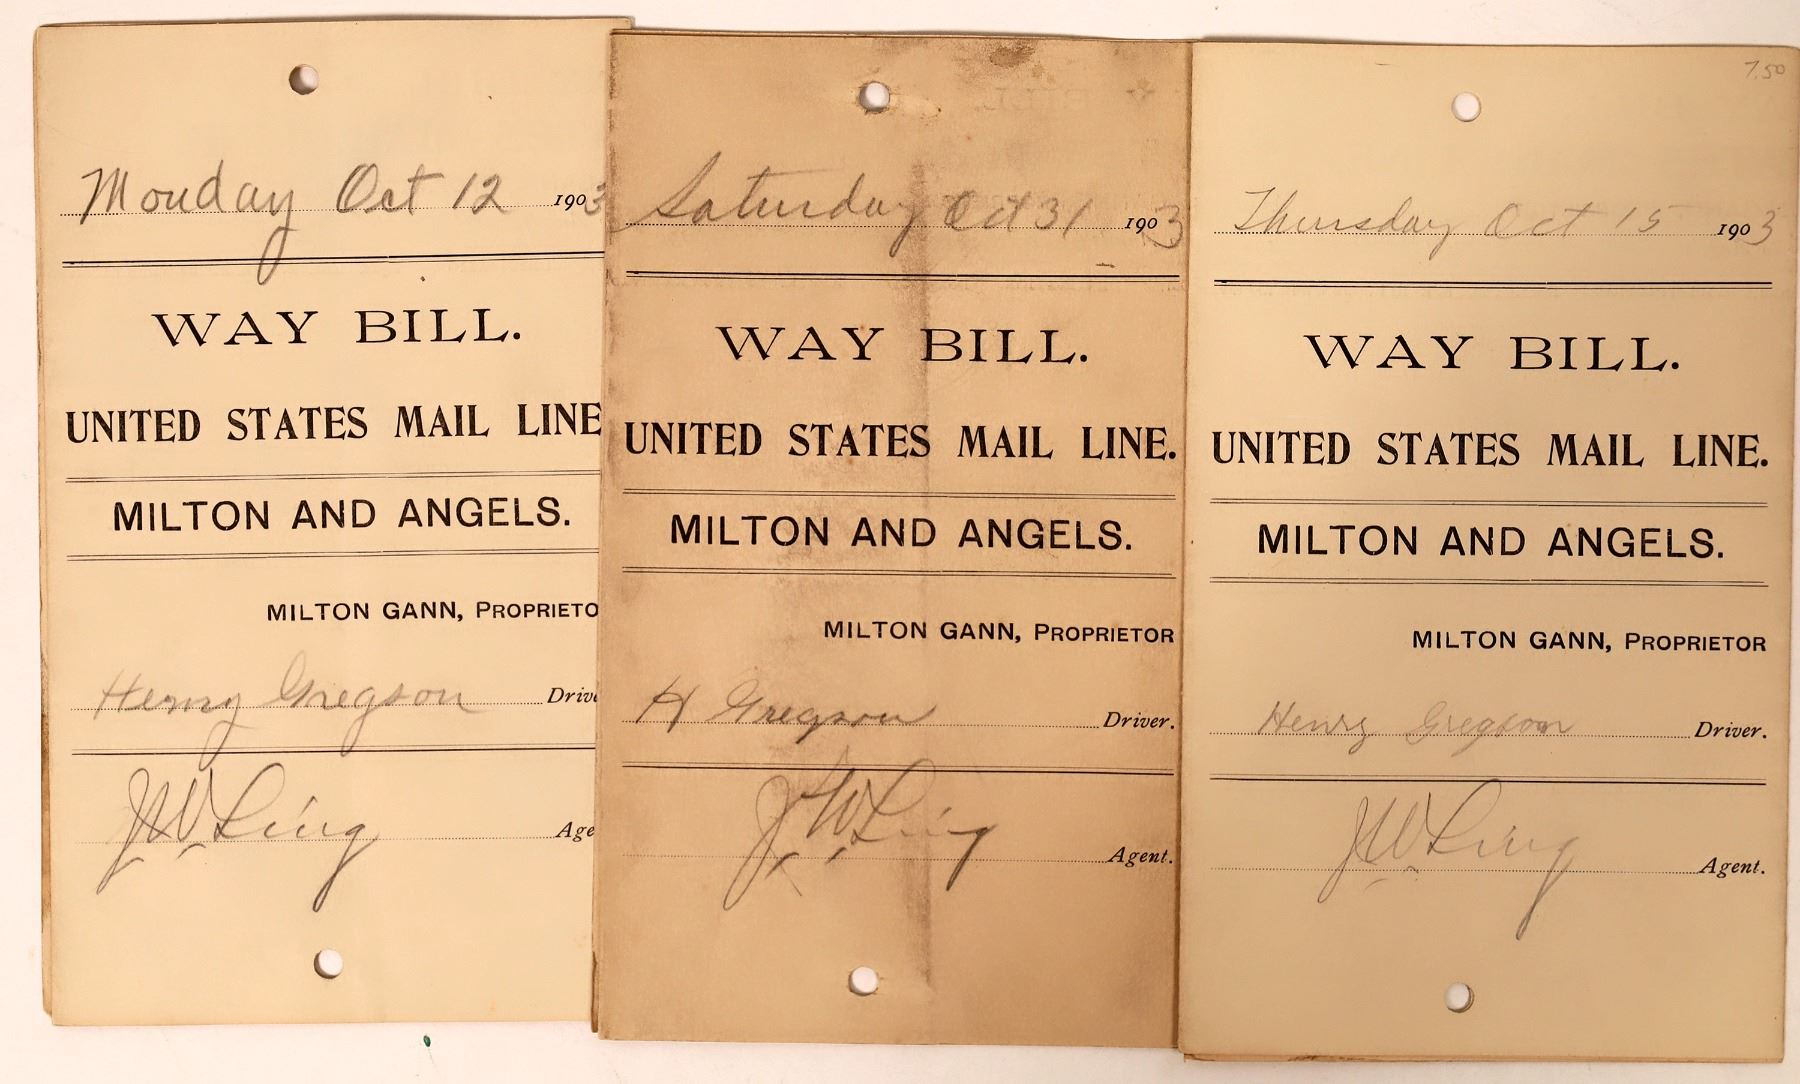 Monday Oct 12 1903
WAY BILL.
UNITED STATES MAIL LINE
MILTON AND ANGELS.
MILTON GANN, PROPRIETO
Henry Gregson Drive
J W Ling Age
BILL
Saturday Oct 31 1903
WAY BILL.
UNITED STATES MAIL LINE.
MILTON AND ANGELS.
MILTON GANN, PROPRIETOR
H Gregson Driver.
J W Ling Agent.
7.50
Thursday Oct 15 1903
WAY BILL.
UNITED STATES MAIL LINE.
MILTON AND ANGELS.
MILTON GANN, PROPRIETOR
Henry Gregson Driver.
J W Ling Agent.